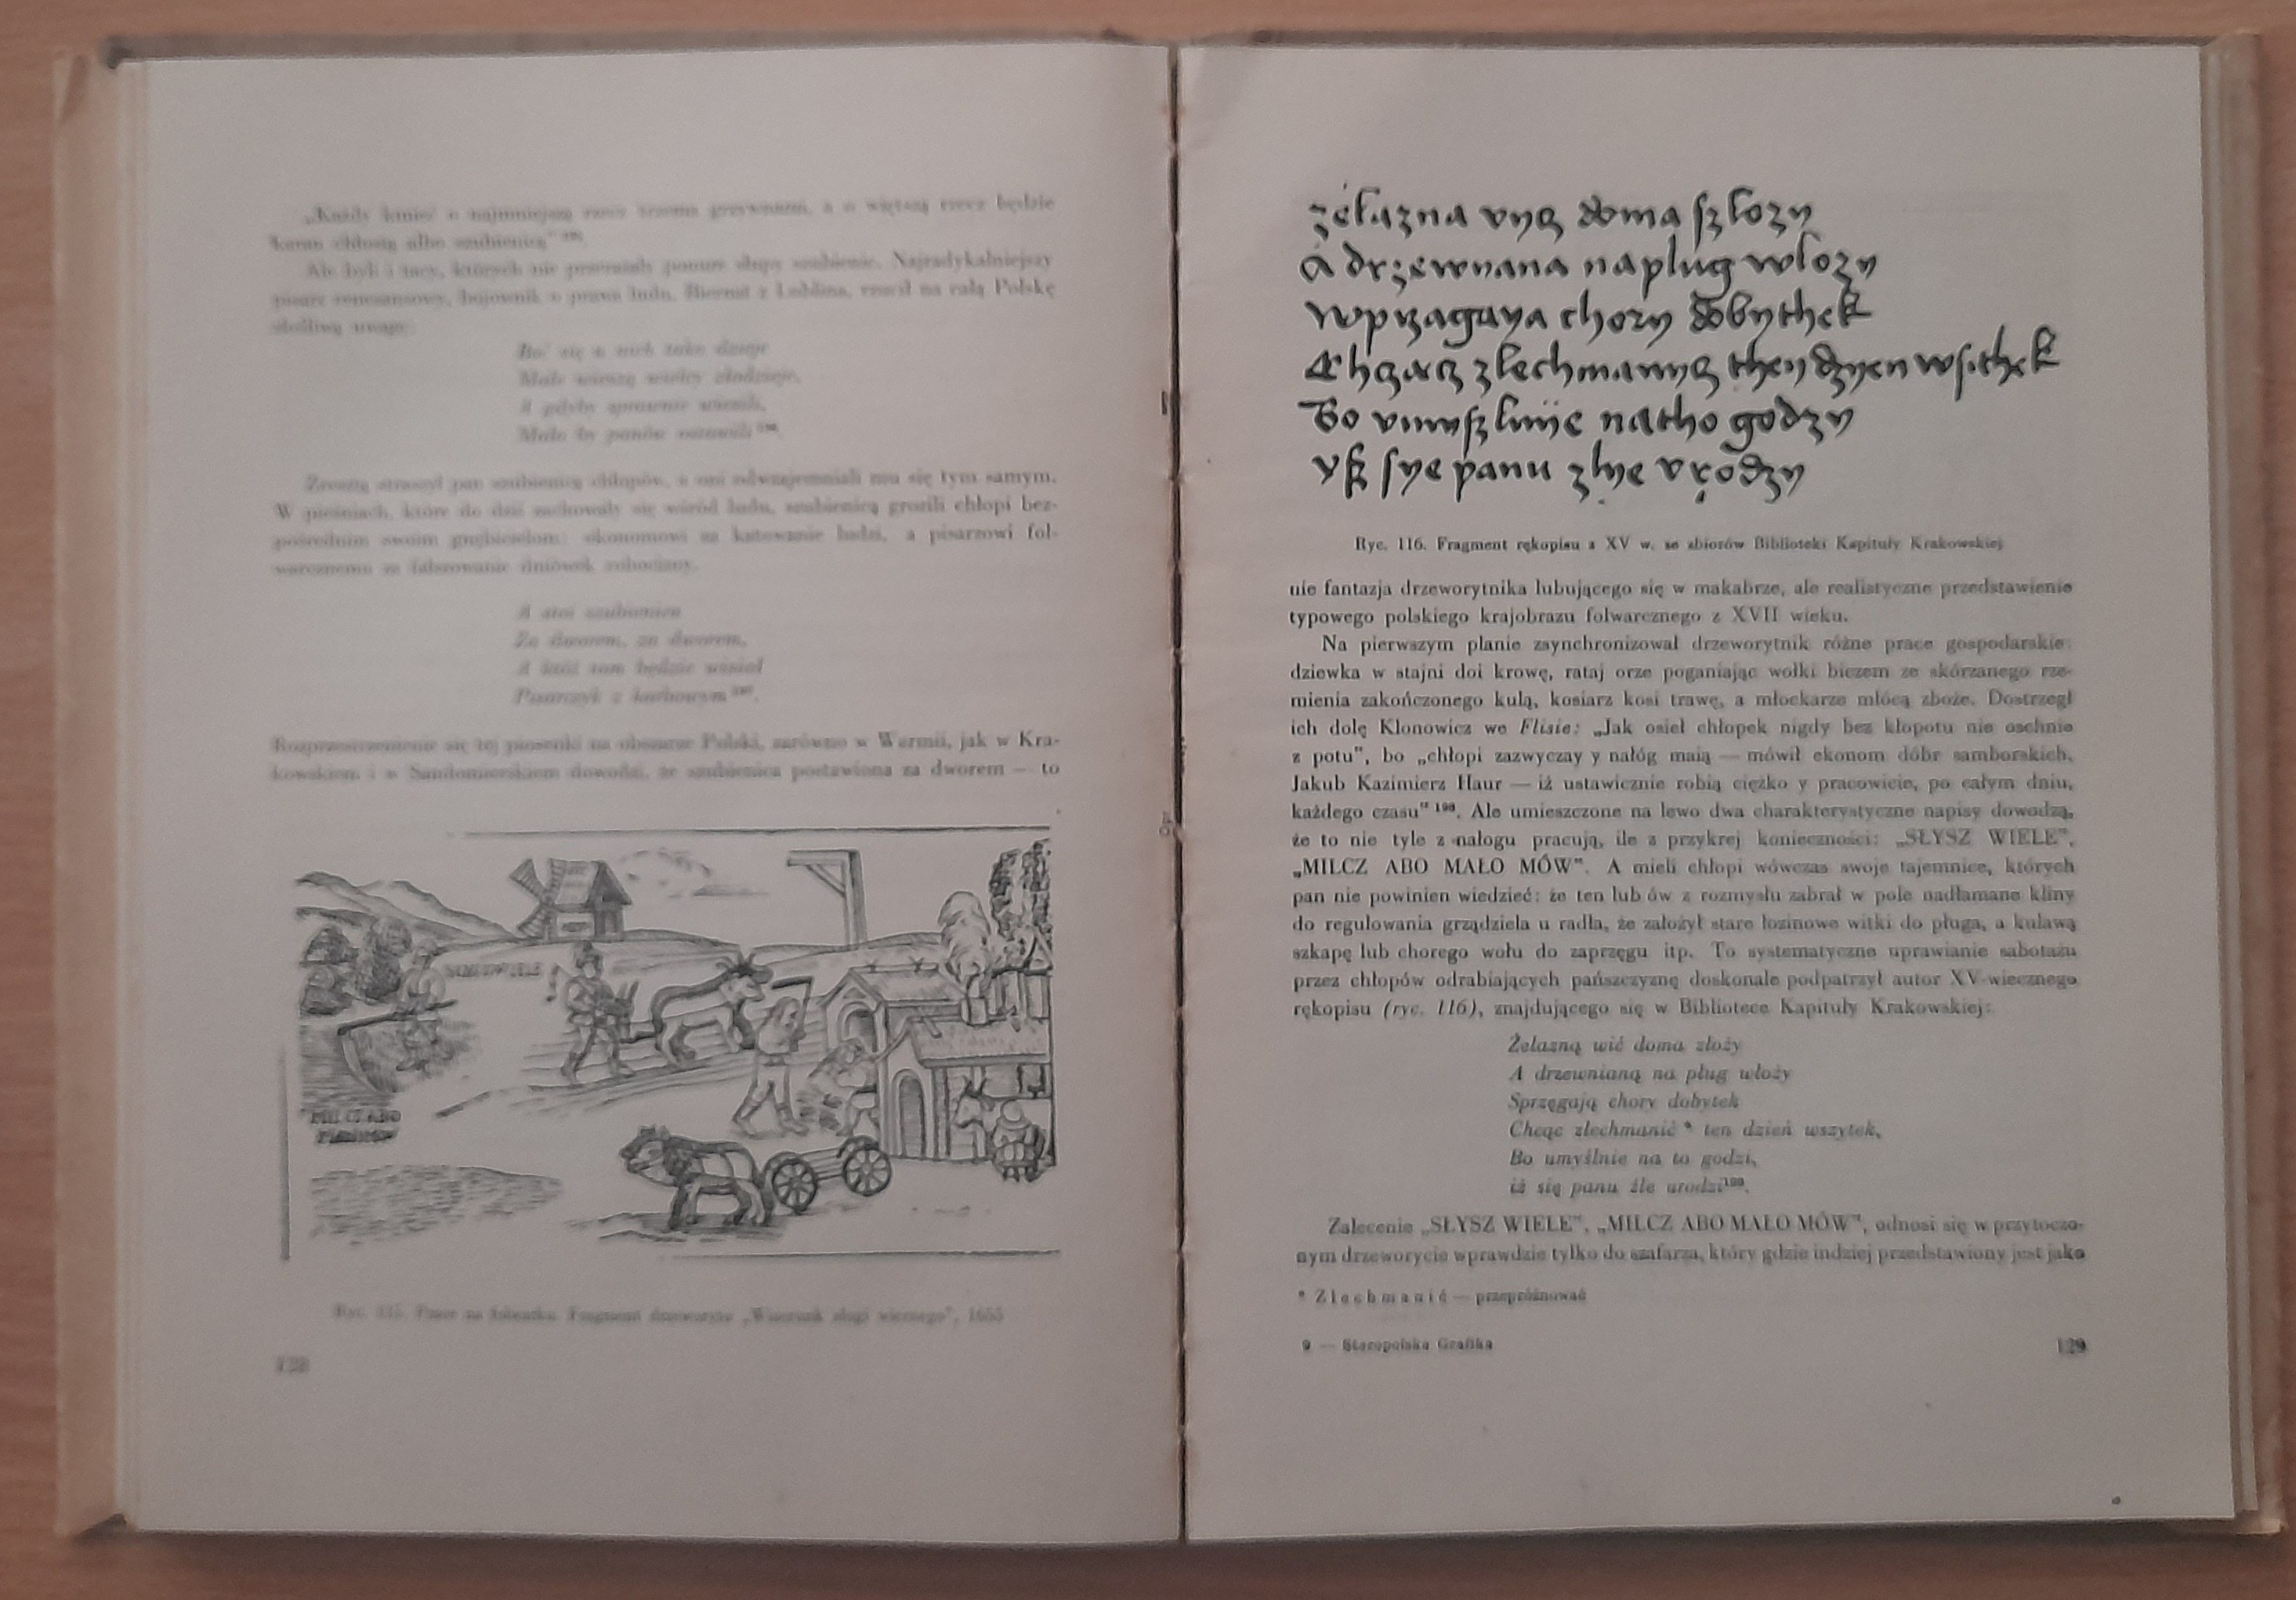 „Każdy kmieć o najmniejszą rzecz trzema grzywnami, a o większą rzecz będzie
karan chłostą albo szubienicą"
Ale byli i tacy, których nie przerażały ponure słupy szubienic. Najradykalniejszy
pisarz renesansowy, bojownik o prawa ludu, Biernat z Lublina, rzucił na całą Polskę
uwagę:
Boć się u nich tako dzieje
Małe wieszą wielcy złodzieje,
A gdyby sprawnie wieszali,
Mało by panów
Zresztą straszył pan szubienicą chłopów, a oni odwzajemniali mu się tym samym.
W pieśniach, które do dziś zachowały się wśród ludu, szubienicą grozili chłopi bez-
pośrednim swoim gnębicielom: ekonomowi za katowanie ludzi, a pisarzowi fol-
warcznemu za fałszowanie dniówek robocizny.
A stoi szubienica
Za dworem, za dworem,
A któż tam będzie wisiał
Pisarczyk z karbowym
Rozprzestrzenienie się tej piosenki na obszarze Polski, zarówno w Warmii, jak w Kra-
kowskiem i w Sandomierskiem dowodzi, że szubienica postawiona za dworem — to
MILCZ ABO
Ryc. 115. Prace na folwarku. Fragment drzeworytu „Wizerunk sługi wiernego", 1655
128
żelazna vycz doma szlozy
A drzewnana naplug wlozy
Wprzagaya chory dobythek
Chczacz zlechmanycz then dzyen wsithek
Bo vmyszlnije natho godzy
Ysz sye panu zlye vrodzy
Ryc. 116. Fragment rękopisu z XV w. ze zbiorów Biblioteki Kapituły Krakowskiej
nie fantazja drzeworytnika lubującego się w makabrze, ale realistyczne przedstawienie
typowego polskiego krajobrazu folwarcznego z XVII wieku.
Na pierwszym planie zsynchronizował drzeworytnik różne prace gospodarskie:
dziewka w stajni doi krowę, rataj orze poganiając wołki biczem ze skórzanego rze-
mienia zakończonego kulą, kosiarz kosi trawę, a młockarze młócą zboże. Dostrzegł
ich dolę Klonowicz we Flisie: „Jak osieł chłopek nigdy bez kłopotu nie oschnie
z potu", bo „chłopi zazwyczay y nałóg maią — mówił ekonom dóbr samborskich,
Jakub Kazimierz Haur — iż ustawicznie robią ciężko y pracowicie, po całym dniu,
każdego czasu" 198. Ale umieszczone na lewo dwa charakterystyczne napisy dowodzą,
że to nie tyle z nałogu pracują, ile z przykrej konieczności: „SŁYSZ WIELE",
„MILCZ ABO MAŁO MÓW". A mieli chłopi wówczas swoje tajemnice, których
pan nie powinien wiedzieć: że ten lub ów z rozmysłu zabrał w pole nadłamane kliny
do regulowania grządziela u radła, że założył stare łozinowe witki do pługa, a kulawą
szkapę lub chorego wołu do zaprzęgu itp. To systematyczne uprawianie sabotażu
przez chłopów odrabiających pańszczyznę doskonale podpatrzył autor XV-wiecznego
rękopisu (ryc. 116), znajdującego się w Bibliotece Kapituły Krakowskiej:
Żelazną wić doma złoży
A drzewnianą na pług włoży
Sprzęgają chory dobytek
Chcąc zlechmanić * ten dzień wszytek,
Bo umyślnie na to godzi,
iż się panu źle urodzi199.
Zalecenie „SŁYSZ WIELE", „MILCZ ABO MAŁO MÓW", odnosi się w przytoczo-
nym drzeworycie wprawdzie tylko do szafarza, który gdzie indziej przedstawiony jest jako
* Zlechmanić — przepróżnować
9 — Staropolska Grafika
129